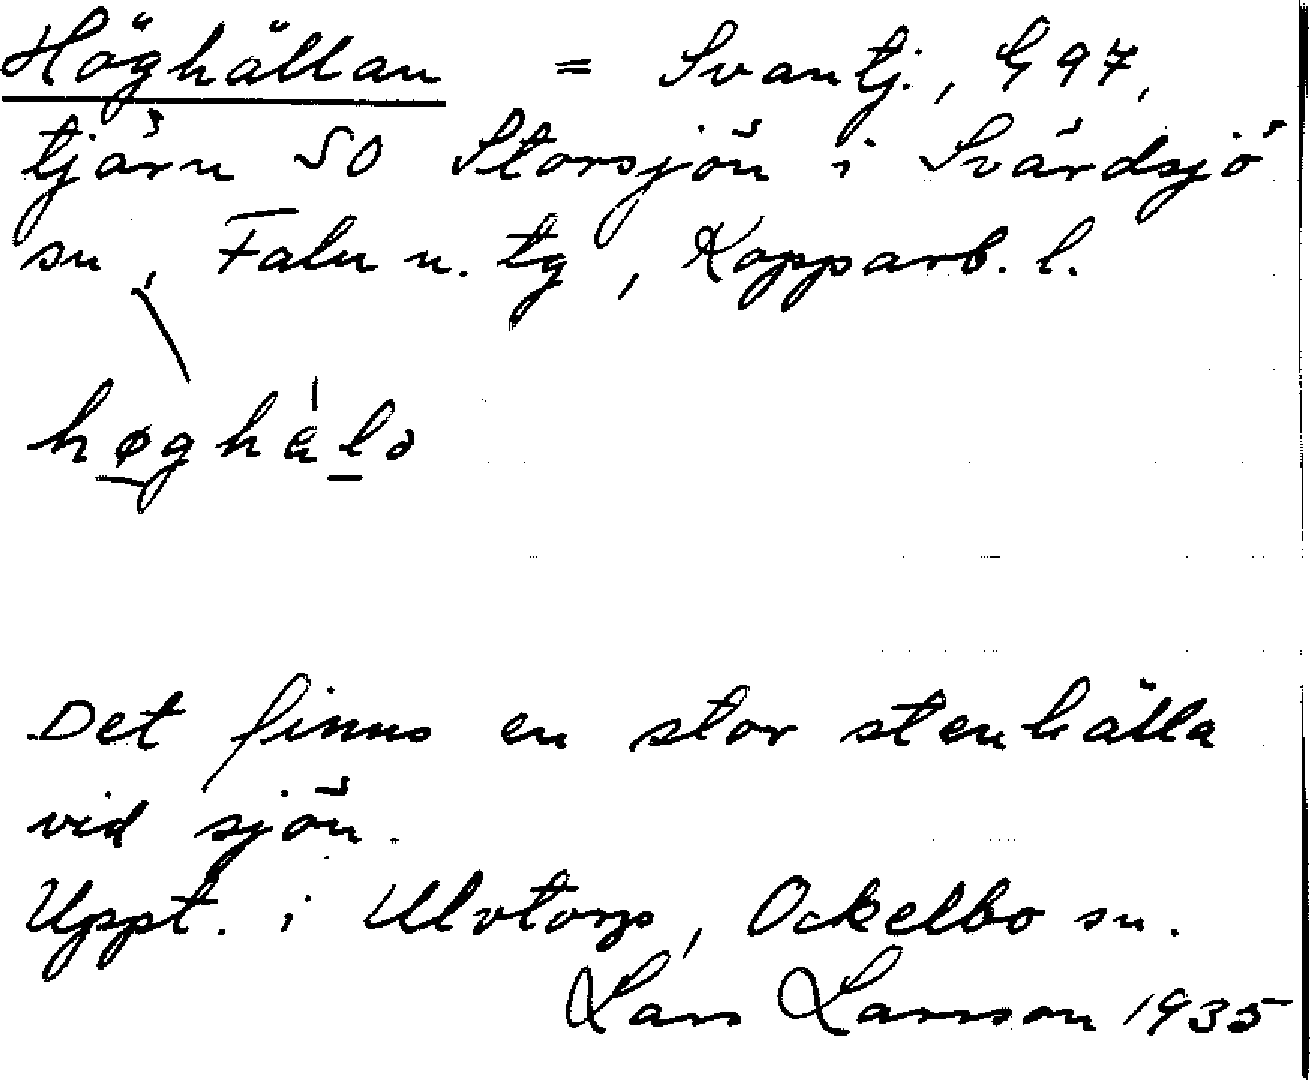 Höghällan = Svantj., G 97,
tjärn SO Storsjön i Svärdsjö
sn, Falu n. tg, Kopparb. l.
høghàlə
Det finns en stor stenhälla
vid sjön.
Uppt. i Ulvtorp, Ockelbo sn.
Lars Larsson 1935